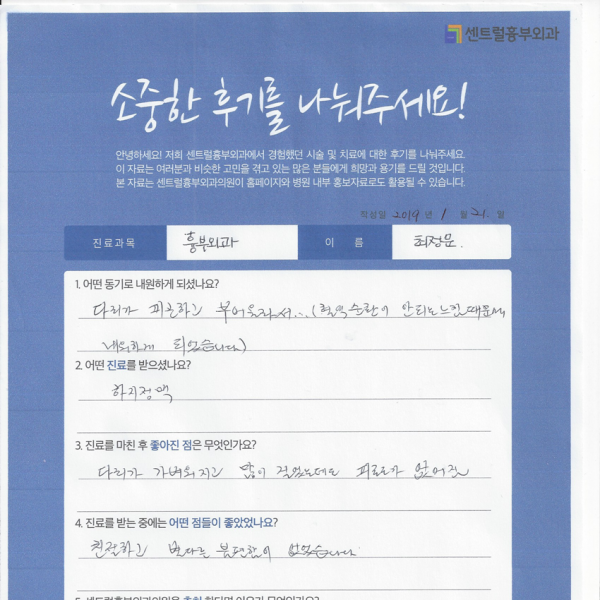 센트럴흉부외과
소중한 후기를 나눠주세요!
안녕하세요! 저희 센트럴흉부외과에서 경험했던 시술 및 치료에 대한 후기를 나눠주세요.
이 자료는 여러분과 비슷한 고민을 겪고 있는 많은 분들에게 희망과 용기를 드릴 것입니다.
본 자료는 센트럴흉부외과의원이 홈페이지와 병원 내부 홍보자료로도 활용될 수 있습니다.
작성일 2019 년 1 월 21. 일
진료과목 흉부외과 이 름 최정문.
1. 어떤 동기로 내원하게 되셨나요?
다리가 피곤하고 부어올라서...(혈액순환이 안되는느낌때문에
내원하게 되었습니다)
2. 어떤 진료를 받으셨나요?
하지정맥
3. 진료를 마친 후 좋아진 점은 무엇인가요?
다리가 가벼워지고 많이 걸었는데도 피로가 없어짐
4. 진료를 받는 중에는 어떤 점들이 좋았었나요?
친절하고 불편함이 없었습니다.